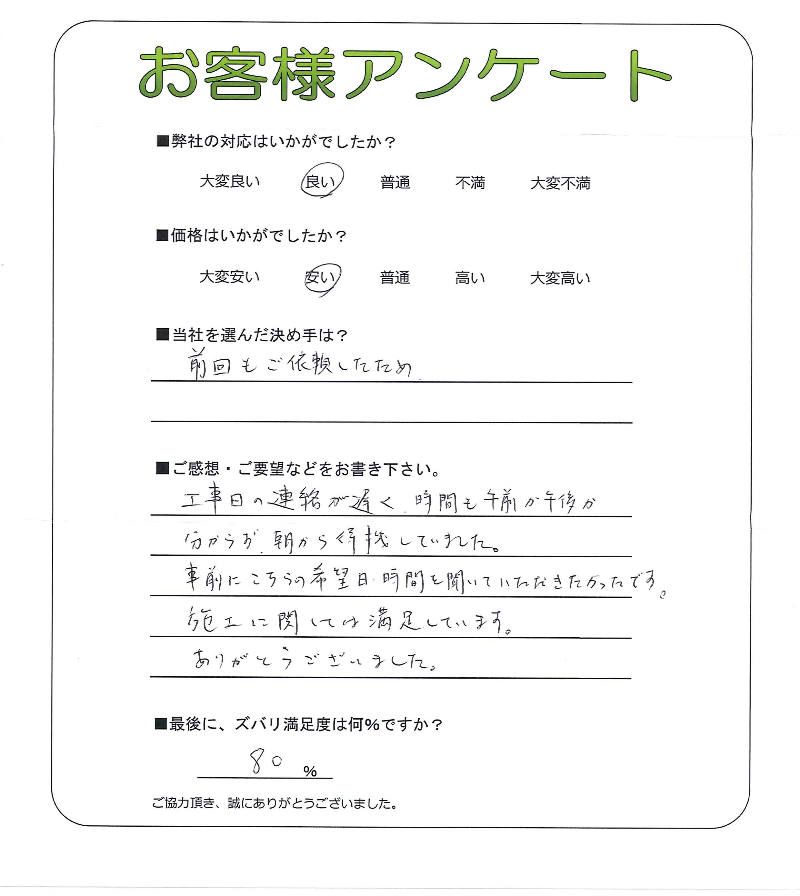 お客様アンケート
■弊社の対応はいかがでしたか？
大変良い 良い 普通 不満 大変不満
■価格はいかがでしたか？
大変安い 安い 普通 高い 大変高い
■当社を選んだ決め手は？
前回もご依頼したため
■ご感想・ご要望などをお書き下さい。
工事日の連絡が遅く、時間も午前か午後か
分からず、朝から待機していました。
事前にこちらの希望日・時間を聞いていただきたかったです。
施工に関しては満足しています。
ありがとうございました。
■最後に、ズバリ満足度は何％ですか？
80 %
ご協力頂き、誠にありがとうございました。